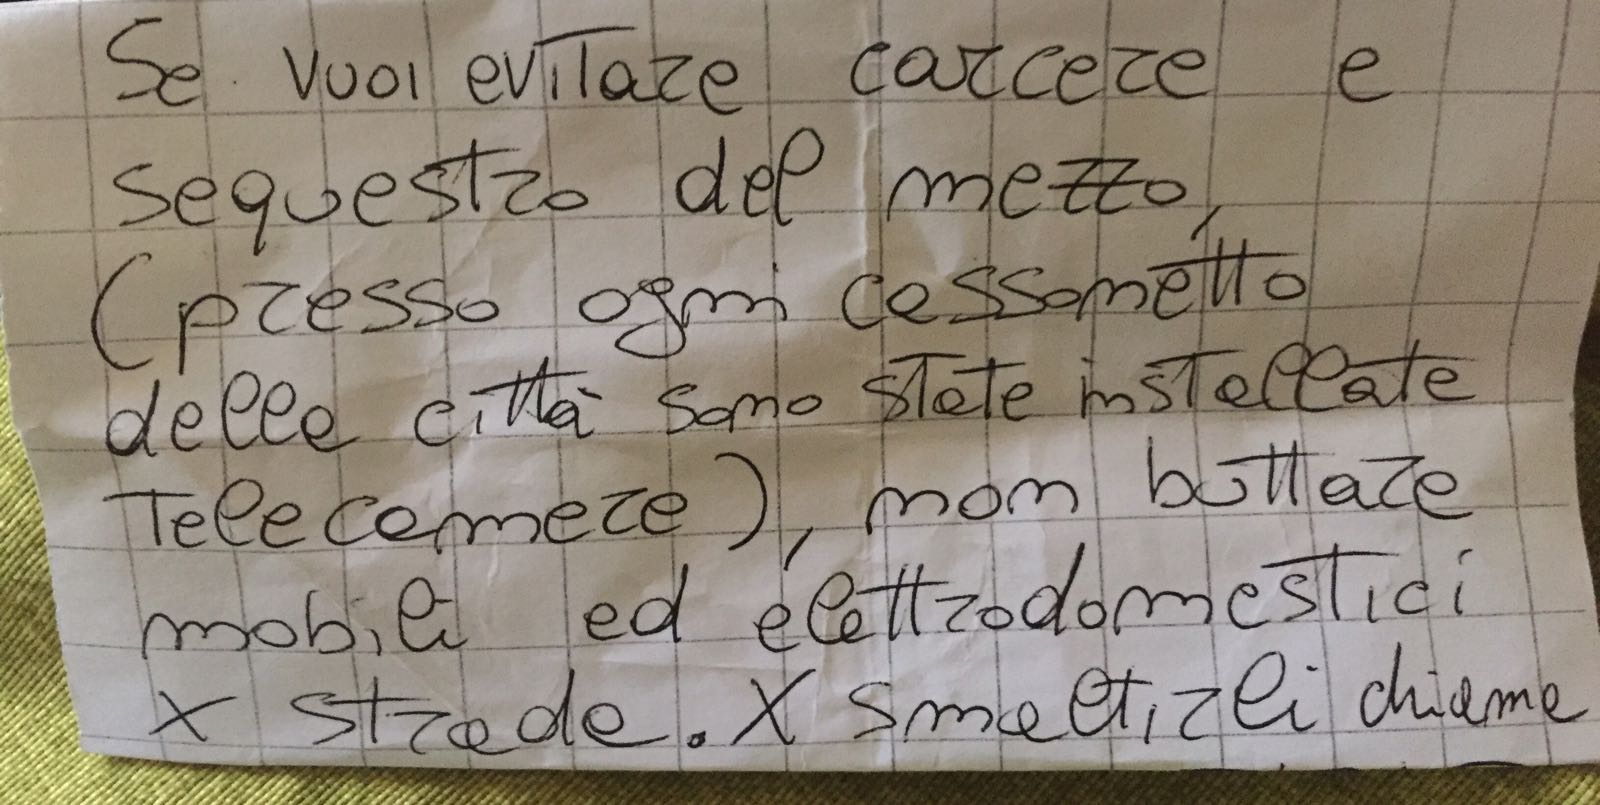 Se vuoi evitare carcere e
sequestro del mezzo,
(presso ogni cassonetto
della città sono state installate
telecamere), non buttare
mobili ed elettrodomestici
x strada. X smaltirli chiama